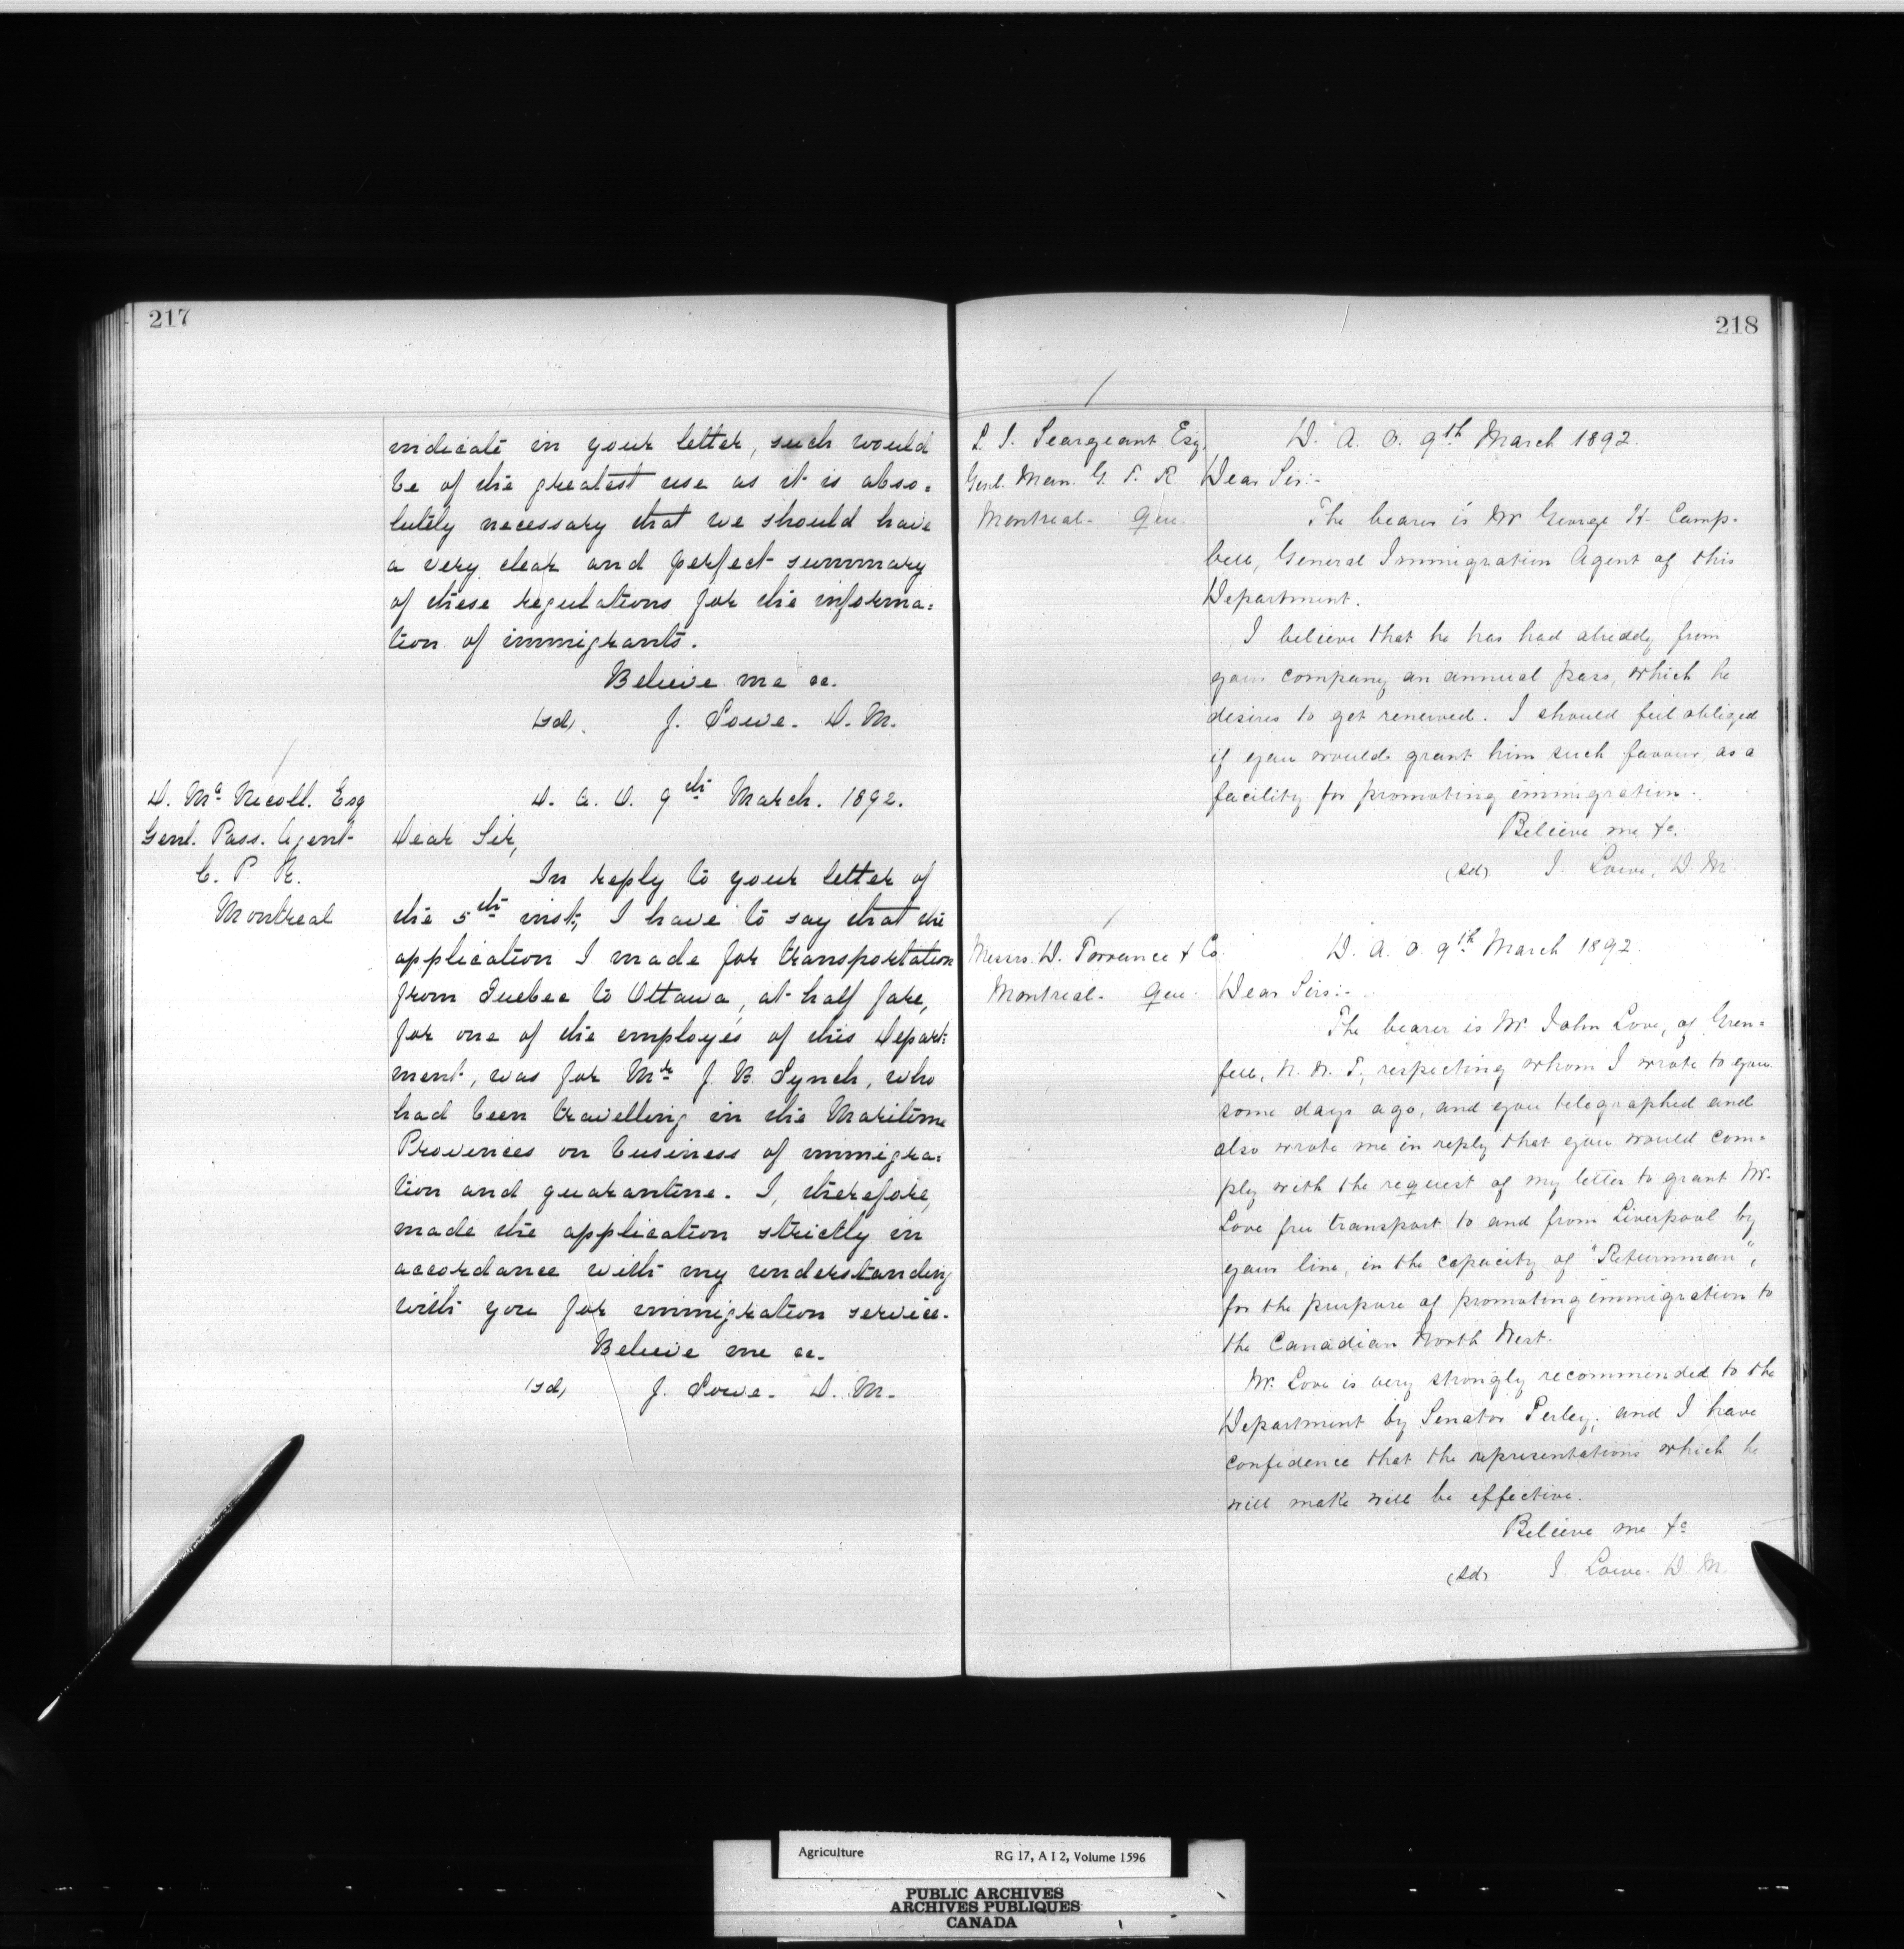 217
indicate in your letter, such would
be of the greatest use as it is abso=
lutely necessary that we should have
a very clear and perfect summary
of these regulations for the informa=
tion of immigrants.
Believe me &c.
(sd). J. Lowe. D. M.
D. Mc Nicoll. Esq
Genl. Pass. Agent
C. P. R.
Montreal
D. A. O. 9th March. 1892.
Dear Sir,
In reply to your letter of
the 5th inst, I have to say that the
application I made for transportation
from Quebec to Ottawa, at half fare,
for one of the employés of this Depart=
ment, was for Mr J. B. Lynch, who
had been travelling in the Maritime
Provinces on business of immigra=
tion and quarantine. I, therefore,
made the application strictly in
accordance with my understanding
with you for immigration service.
Believe me &c.
(sd) J. Lowe. D. M.
218
L. J. Seargeant Esq.
Genl. Man. G. T. R.
Montreal - Que.
D. A. O. 9th March 1892.
Dear Sir:-
The bearer is Mr George H. Camp-
bell, General Immigration Agent of this
Department.
I believe that he has had already from
your company an annual pass, which he
desires to get renewed. I should feel obliged
if you would grant him such favour, as a
facility for promoting immigration.
Believe me &c.
(sd) J. Lowe, D. M.
Messrs. D. Torrance & Co.
Montreal - Que.
D. A. O. 9th March 1892.
Dear Sirs:-
The bearer is Mr. John Love, of Gren=
fell, N. W. T., respecting whom I wrote to you
some days ago, and you telegraphed and
also wrote me in reply that you would com=
ply with the request of my letter to grant Mr.
Love free transport to and from Liverpool by
your line, in the capacity of "Returnman",
for the purpose of promoting immigration to
the Canadian North West.
Mr. Love is very strongly recommended to the
Department by Senator Perley; and I have
confidence that the representations which he
will make will be effective.
Believe me &c
(sd) J. Lowe. D M.
Agriculture RG 17, A I 2, Volume 1596
PUBLIC ARCHIVES
ARCHIVES PUBLIQUES
CANADA